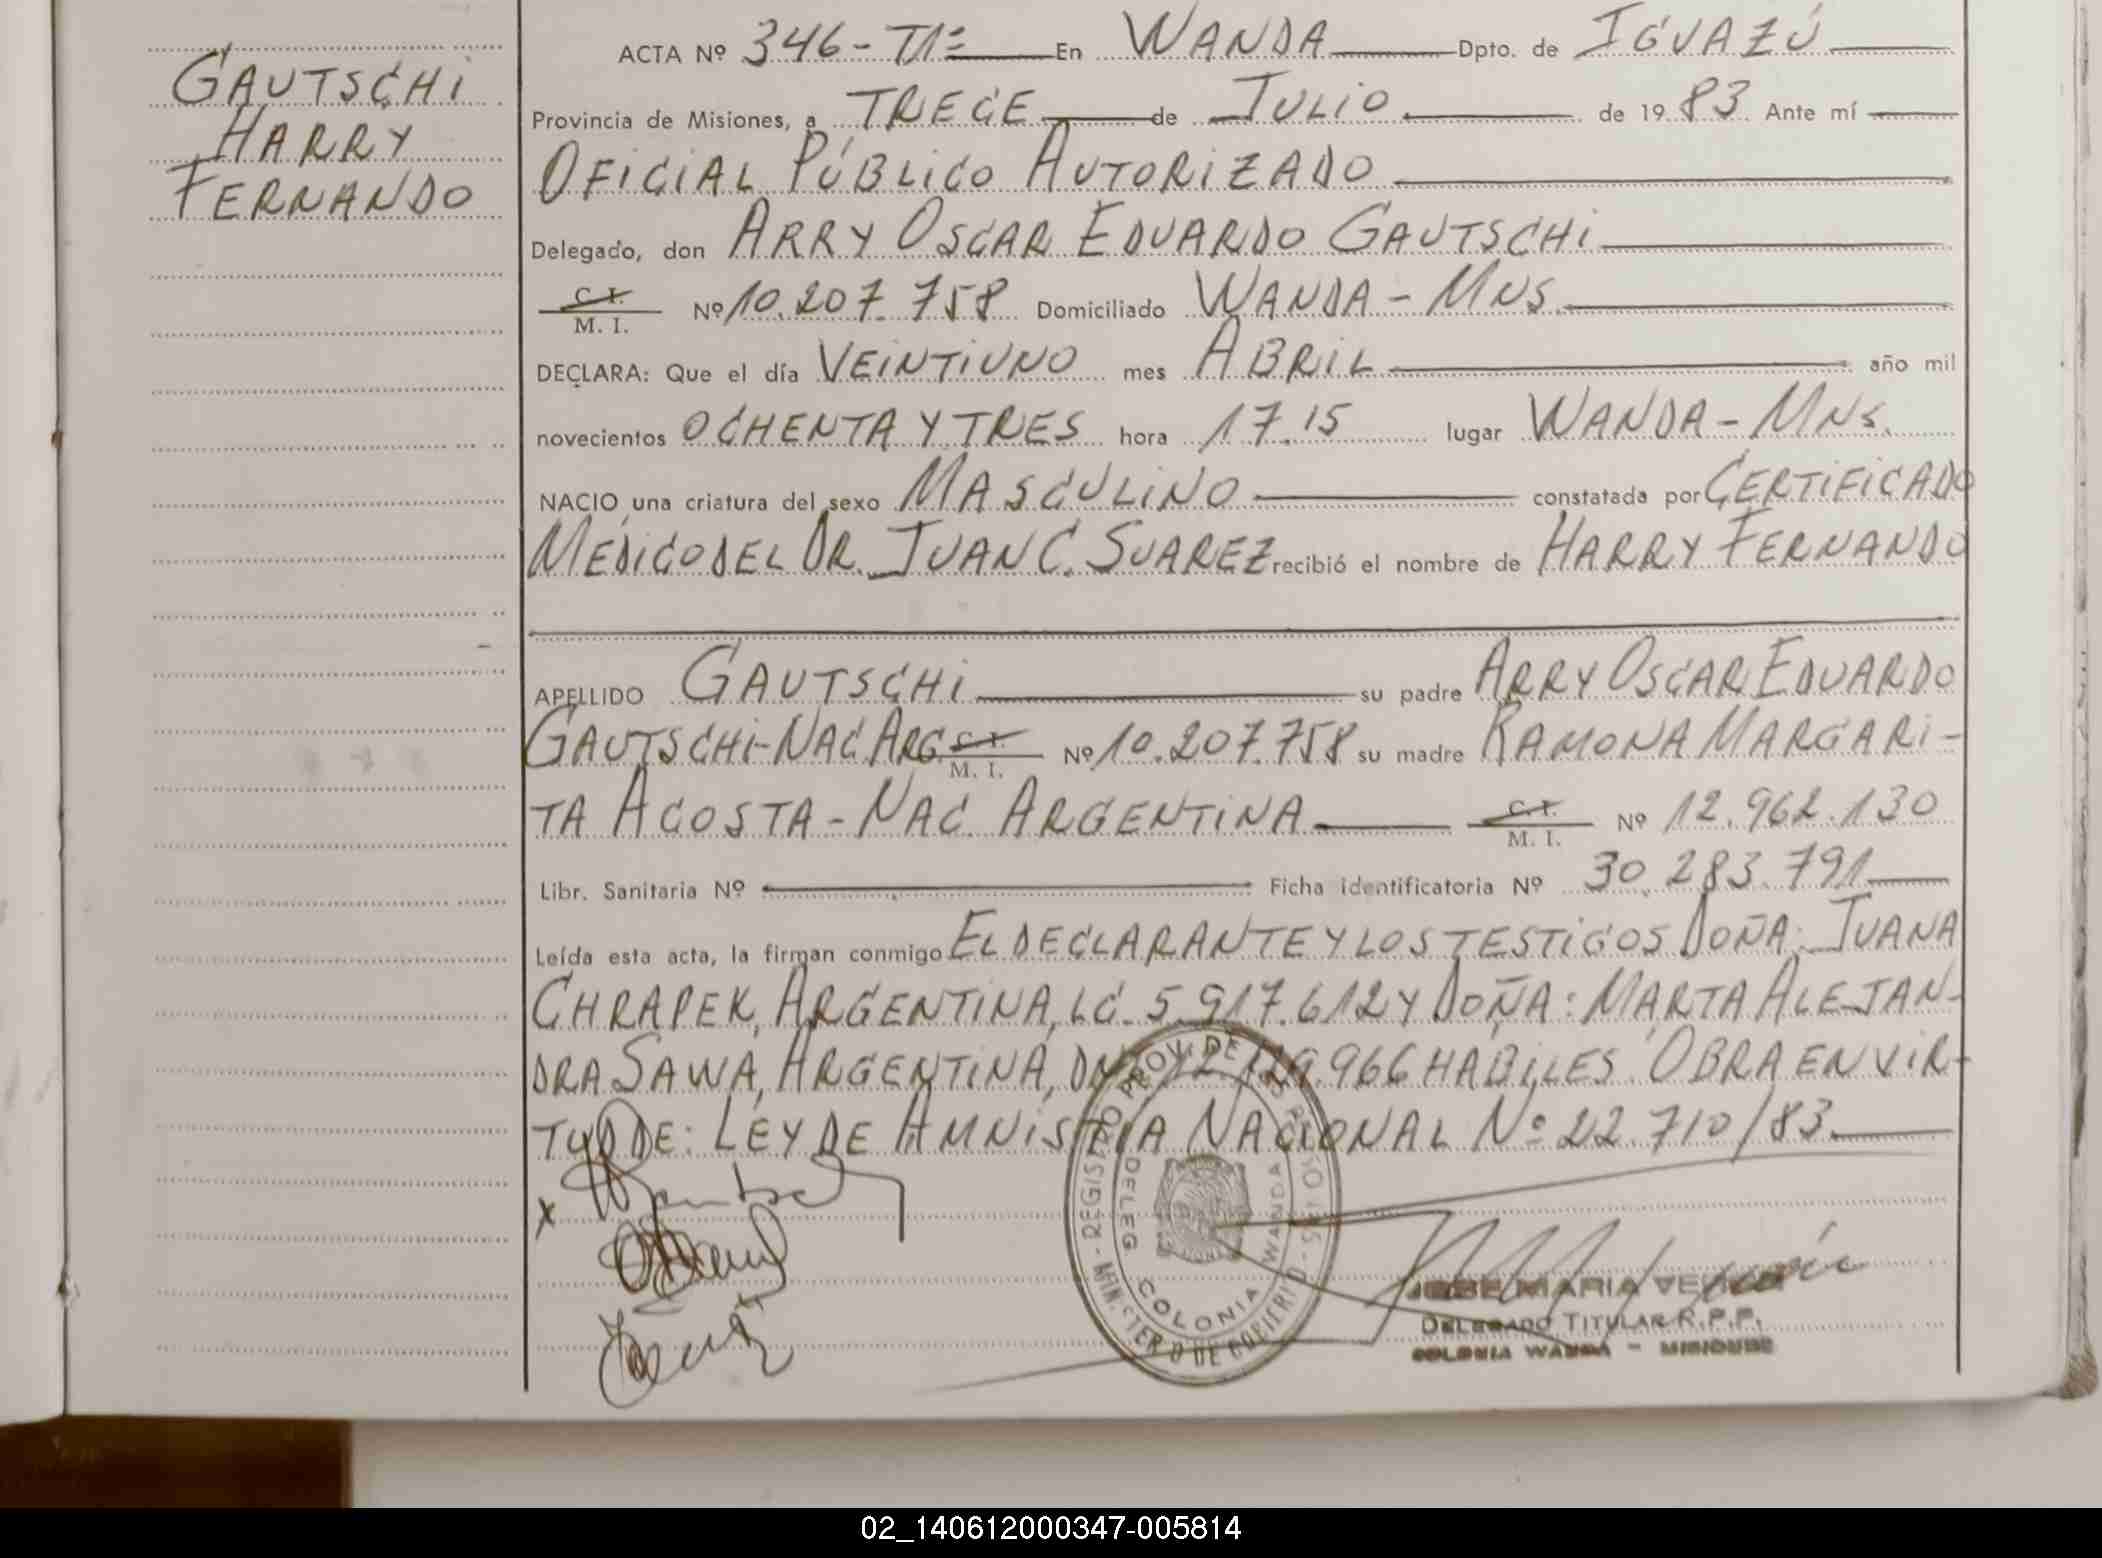 GAUTSCHI
HARRY
FERNANDO
ACTA Nº 346-T1= En WANDA Dpto. de IGUAZÚ
Provincia de Misiones, a TRECE de JULIO de 1983 Ante mí
OFICIAL PÚBLICO AUTORIZADO
Delegado, don ARRY OSCAR EDUARDO GAUTSCHI
C. I.
M. I. Nº 10.207.758 Domiciliado WANDA - MNS.
DECLARA: Que el día VEINTIUNO mes ABRIL año mil
novecientos OCHENTA Y TRES hora 17.15 lugar WANDA - MNS.
NACIO una criatura del sexo MASCULINO constatada por CERTIFICADO
MEDICO DEL DR. JUAN C. SUAREZ recibió el nombre de HARRY FERNANDO
APELLIDO GAUTSCHI su padre ARRY OSCAR EDUARDO
GAUTSCHI-NAC. ARG. C. I. Nº 10.207.758 su madre RAMONA MARGARI-
M. I.
TA ACOSTA - NAC. ARGENTINA C. I. Nº 12.962.130
M. I.
Libr. Sanitaria Nº Ficha identificatoria Nº 30.283.791
Leída esta acta, la firman conmigo EL DECLARANTE Y LOS TESTIGOS DOÑA: JUANA
CHRAPEK, ARGENTINA, LC. 5.917.612 Y DOÑA: MARTA ALEJAN-
DRA SAWA, ARGENTINA, 966 HABILES. OBRA EN VIR-
TUD DE: LEY DE AMNISTIA NACIONAL Nº 22.710/83
REGISTRO PROV. DE
DELEG COLONIA WANDA
MINISTERIO DE GOBIERNO
JOSE MARIA
DELEGADO TITULAR R.P.P.
COLONIA WANDA - MISIONES
02_140612000347-005814